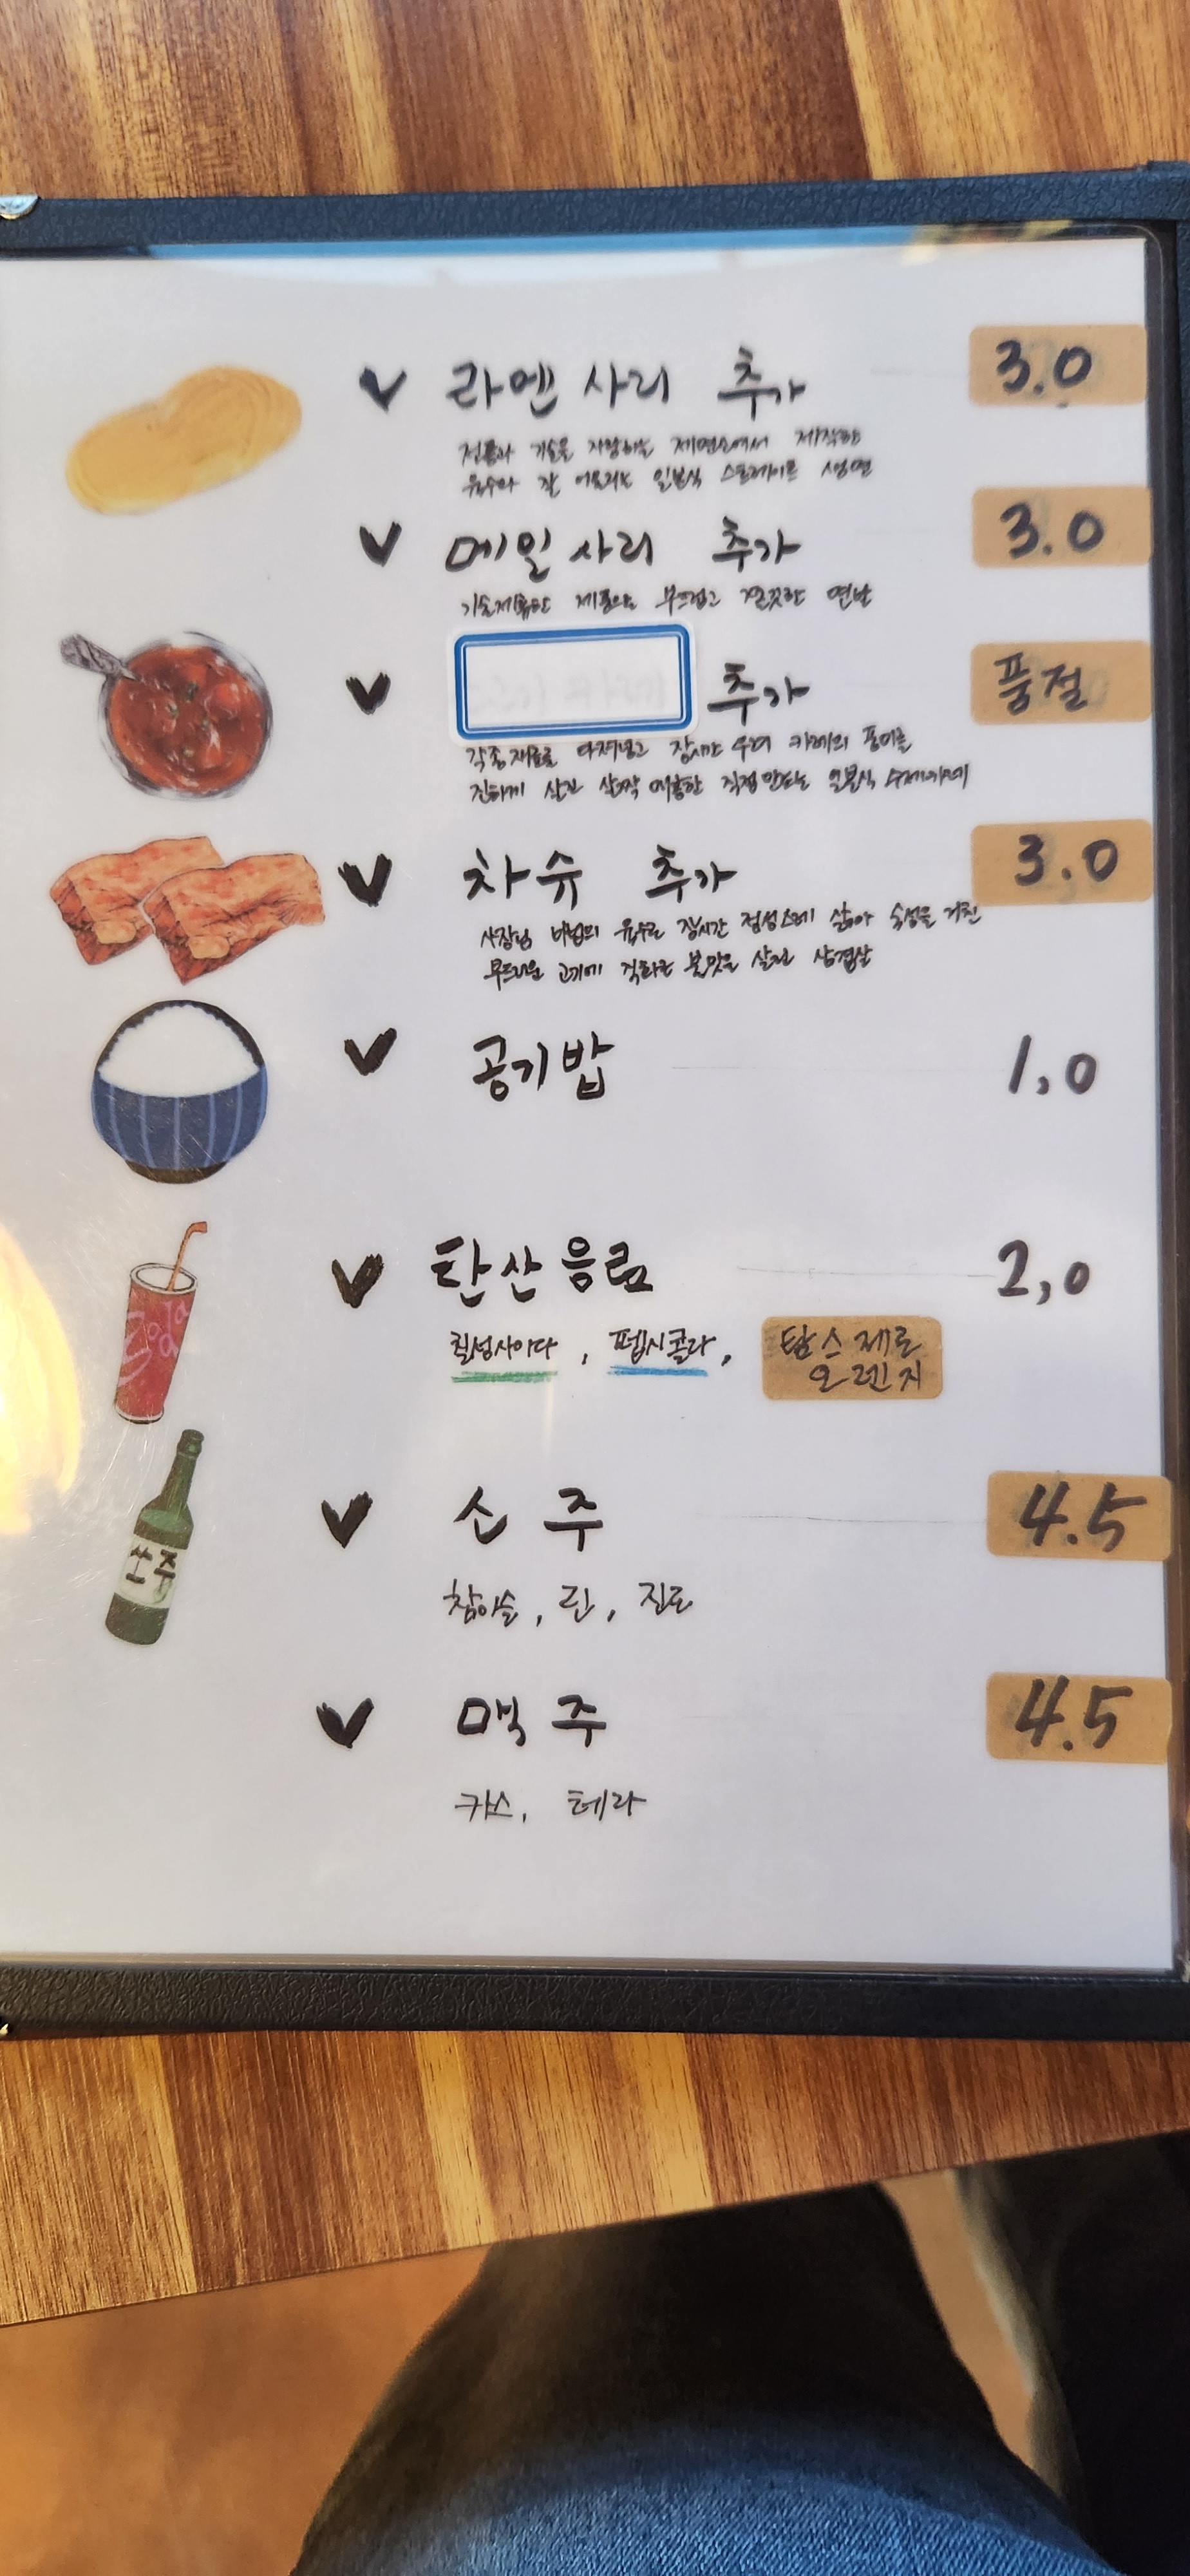 라멘 사리 추가 3.0
전통과 기술을 자랑하는 제면소에서 제작한
육수와 잘 어울리는 일본식 스트레이트 생면
메밀 사리 추가 3.0
기술제휴한 제품으로 부드럽고 깔끗한 면발
추가 품절
각종 재료를 다져넣고 장시간 우려 카레의 풍미를
진하게 살린 살짝 매콤한 직접 만드는 일본식 수제카레
차슈 추가 3.0
사장님 비법의 육수로 장시간 정성스레 삶아 숙성을 거친
부드러운 고기에 직화로 불맛을 살린 삼겹살
공기밥 1,0
Soda
탄산음료 2,0
칠성사이다, 펩시콜라, 탐스 제로
오렌지
소주 4.5
소주
참이슬, 린, 진로
맥주 4.5
카스, 테라